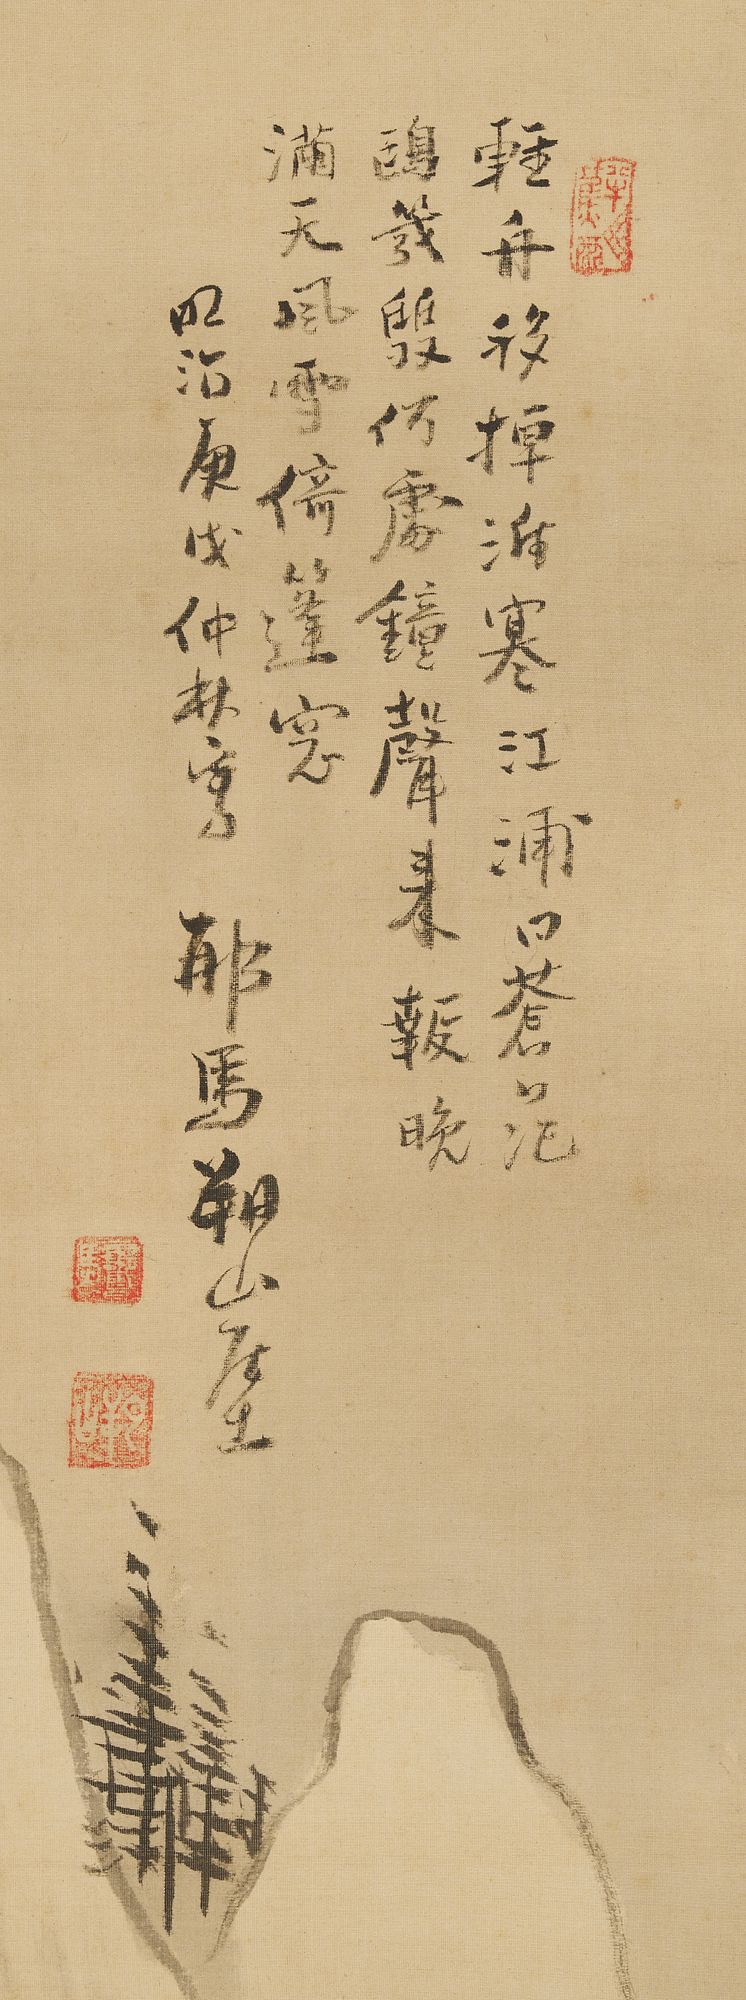 輕舟移掉淮寒江浦口蒼茫
鷗幾雙何處鐘聲来報晚
滿天風雪倚篷窓
明治庚戌仲秋寫 耶馬朔山